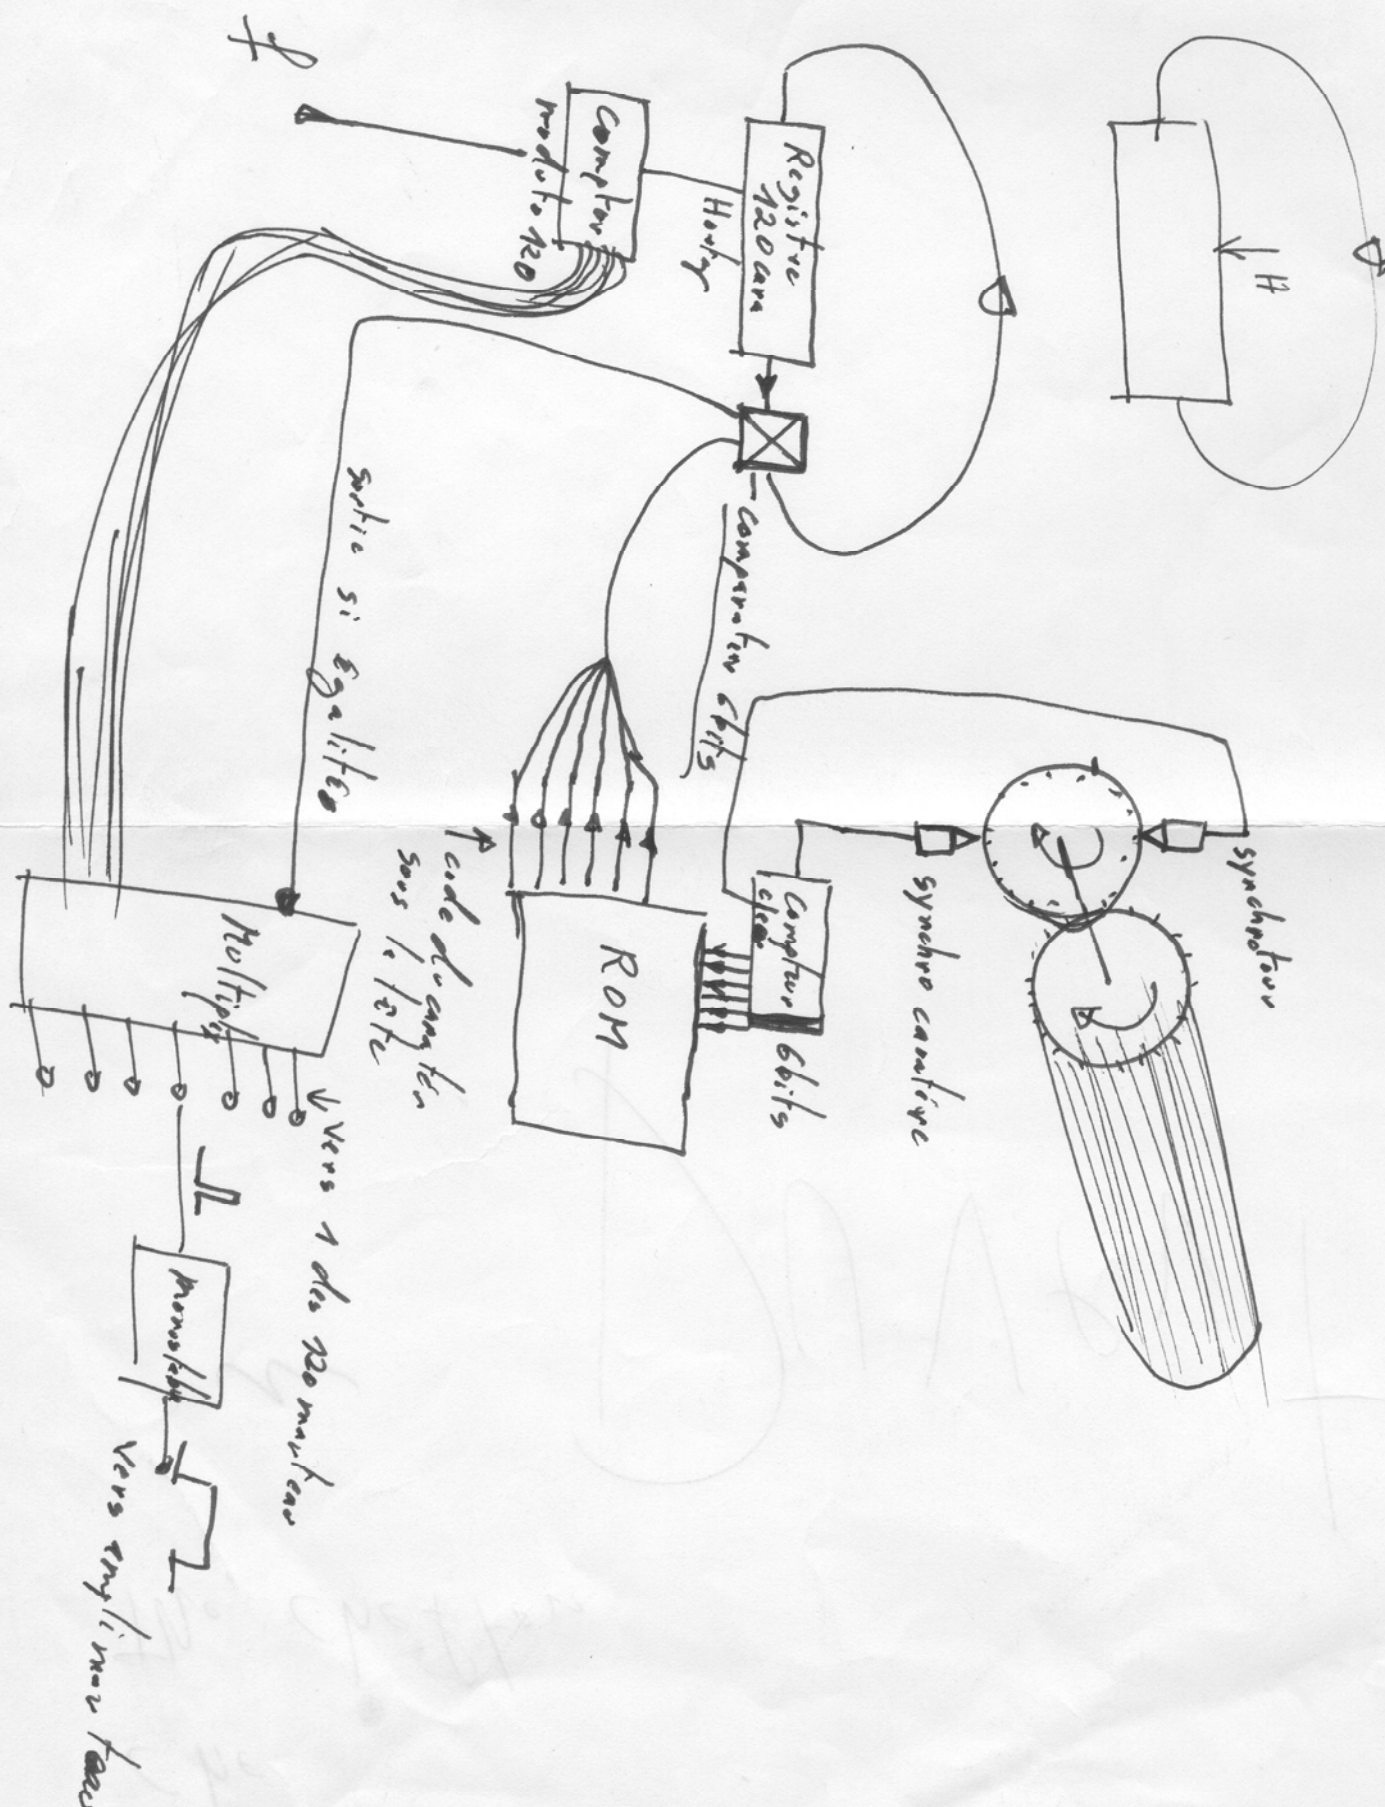 H
Registre
120 cara
Horloge
Compteur
modulo 120
f
comparateur 6bits
sortie si Égalitée
synchrotour
synchro caratère
Compteur
clear
6bits
ROM
code du caratère
sous la tête
Multiplex
vers 1 des 120 marteau
Monostable
vers ampli marteau